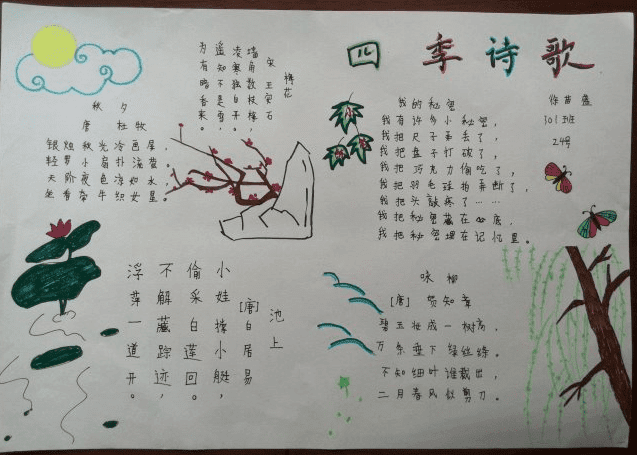 四季诗歌
徐苗盛
301班
24号
我的秘密
我有许多小秘密，
我把尺子弄丢了，
我把盘子打破了，
我把巧克力偷吃了，
我把羽毛球拍弄断了，
我把头敲疼了……
我把秘密藏在心底，
我把秘密埋在记忆里。
梅花
宋 王安石
墙角数枝梅，
凌寒独自开。
遥知不是雪，
为有暗香来。
秋夕
唐 杜牧
银烛秋光冷画屏，
轻罗小扇扑流萤。
天阶夜色凉如水，
坐看牵牛织女星。
池上
[唐]白居易
小娃撑小艇，
偷采白莲回。
不解藏踪迹，
浮萍一道开。
咏柳
[唐] 贺知章
碧玉妆成一树高，
万条垂下绿丝绦。
不知细叶谁裁出，
二月春风似剪刀。